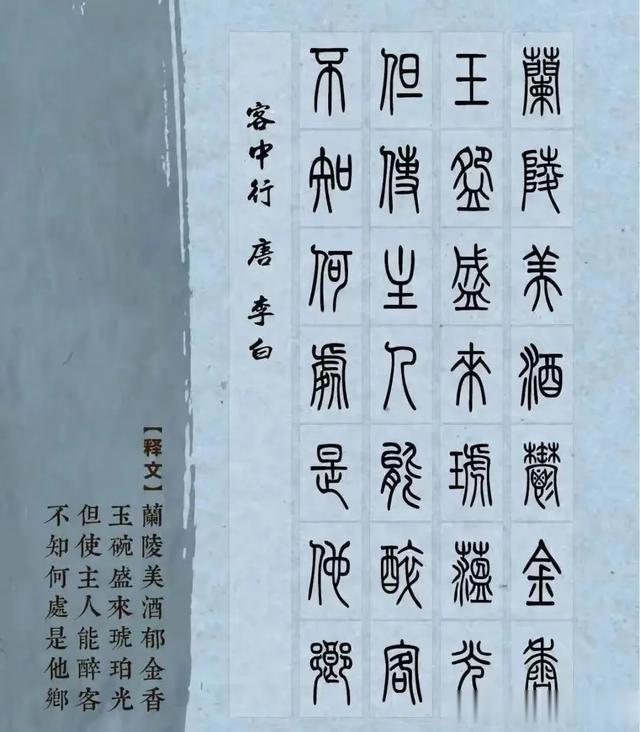 蘭陵美酒鬱金香
玉盌盛來琥薀光
但使主人能醉客
不知何處是他鄉
客中行 唐 李白
【释文】
蘭陵美酒郁金香
玉碗盛來琥珀光
但使主人能醉客
不知何處是他鄉